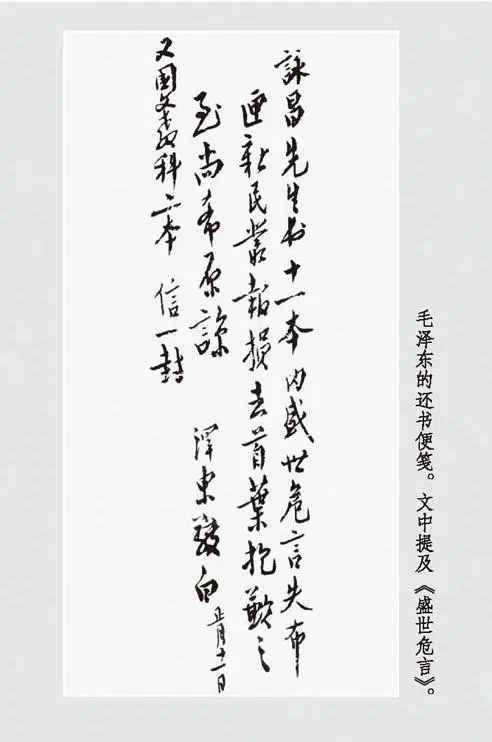 詠昌先生书十一本内盛世危言失布
匣新民叢報損去首葉抱歉之
至尚希原諒 澤東敬白 正月十一日
又國文教科二本 信一封
毛泽东的还书便笺。文中提及《盛世危言》。